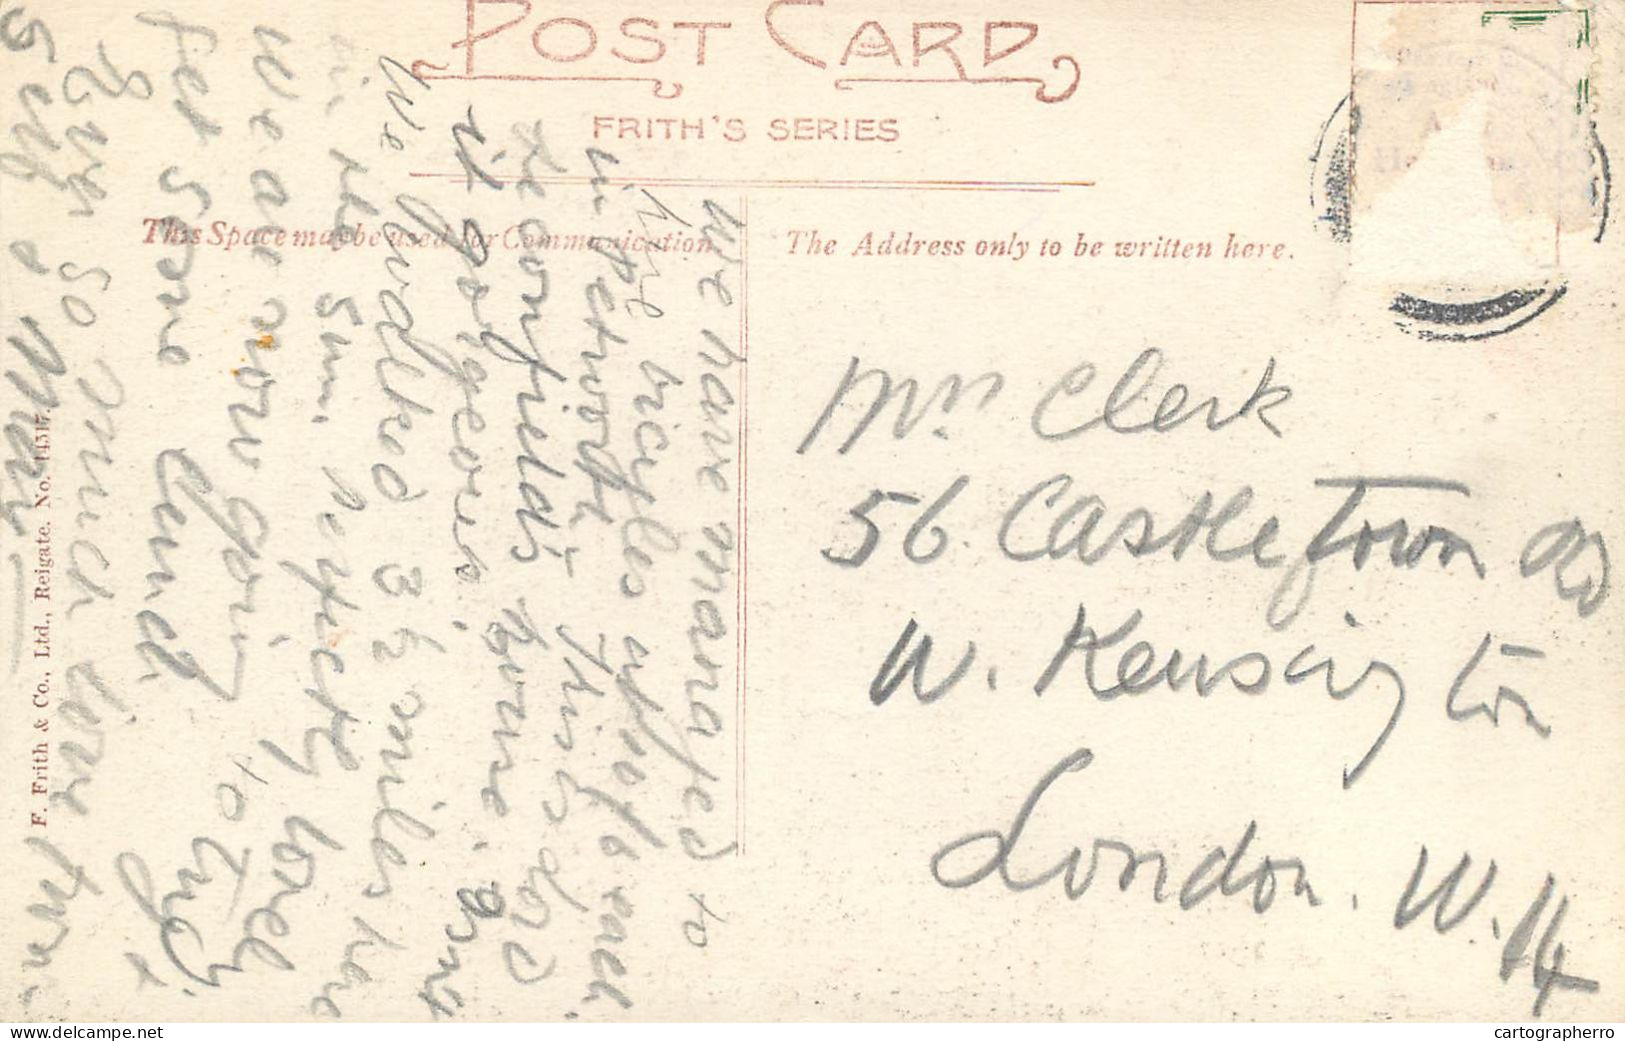 POST CARD
FRITH'S SERIES
This Space may be used for Communication
The Address only to be written here.
We have managed to
hire bicycles
in Petworth
Beaconfield's home. and
it gorgeous.
We walked 3½ miles here
in the sun. Perfectly lovely
We are now going to try &
get some lunch.
Ever so much love from
Self & May
Mrs Clerk
56. Castletown Rd
W. Kensington
London. W. 14
F. Frith & Co., Ltd., Reigate. No. 14517.
cartographerro